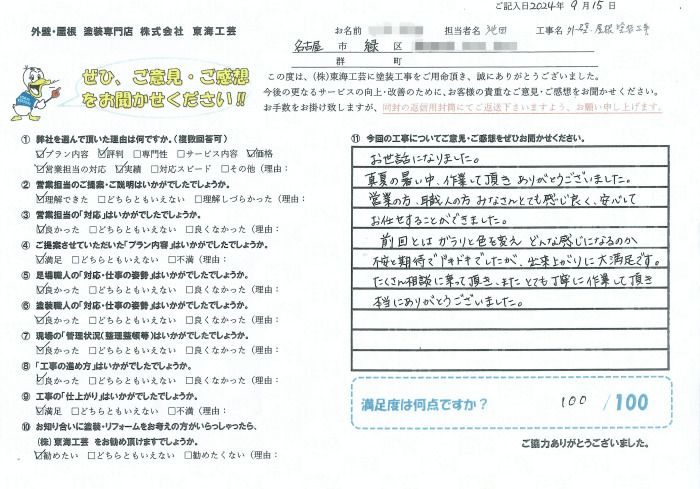 ご記入日2024年 9月15日
外壁・屋根 塗装専門店 株式会社 東海工芸
お名前 担当者名 池田 工事名 外壁、屋根塗装工事
名古屋 市 緑 区
群 町
ぜひ、ご意見・ご感想
をお聞かせください!!
この度は、(株)東海工芸に塗装工事をご用命頂き、誠にありがとうございました。
今後の更なるサービスの向上・改善のために、お客様の貴重なご意見・ご感想をお聞かせください。
お手数をお掛け致しますが、同封の返信用封筒にてご返送下さいますよう、お願い申し上げます。
① 弊社を選んで頂いた理由は何ですか。(複数回答可)
☑プラン内容 ☑評判 □専門性 □サービス内容 ☑価格
☑営業担当の対応 ☑実績 □対応スピード □その他(理由:
② 営業担当のご提案・ご説明はいかがでしたでしょうか。
☑理解できた □どちらともいえない □理解しづらかった(理由:
③ 営業担当の「対応」はいかがでしたでしょうか。
☑良かった □どちらともいえない □良くなかった(理由:
④ ご提案させていただいた「プラン内容」はいかがでしたでしょうか。
☑満足 □どちらともいえない □不満(理由:
⑤ 足場職人の「対応・仕事の姿勢」はいかがでしたでしょうか。
☑良かった □どちらともいえない □良くなかった(理由:
⑥ 塗装職人の「対応・仕事の姿勢」はいかがでしたでしょうか。
☑良かった □どちらともいえない □良くなかった(理由:
⑦ 現場の「管理状況(整理整頓等)はいかがでしたでしょうか。
☑良かった □どちらともいえない □良くなかった(理由:
⑧ 「工事の進め方」はいかがでしたでしょうか。
☑良かった □どちらともいえない □良くなかった(理由:
⑨ 工事の「仕上がり」はいかがでしたでしょうか。
☑満足 □どちらともいえない □不満(理由:
⑩ お知り合いに塗装・リフォームをお考えの方がいらっしゃったら、
(株)東海工芸 をお勧め頂けますでしょうか。
☑勧めたい □どちらともいえない □勧めたくない(理由:
⑪ 今回の工事についてご意見・ご感想をぜひお聞かせください。
お世話になりました。
真夏の暑い中、作業して頂き ありがとうございました。
営業の方、職人の方 みなさんとても感じ良く、安心して
お任せすることができました。
前回とは ガラリと色を変え どんな感じになるのか
不安と期待でドキドキでしたが、出来上がりに大満足です。
たくさん相談に乗って頂き、また とても丁寧に作業して頂き
本当にありがとうございました。
満足度は何点ですか? 100 /100
ご協力ありがとうございました。